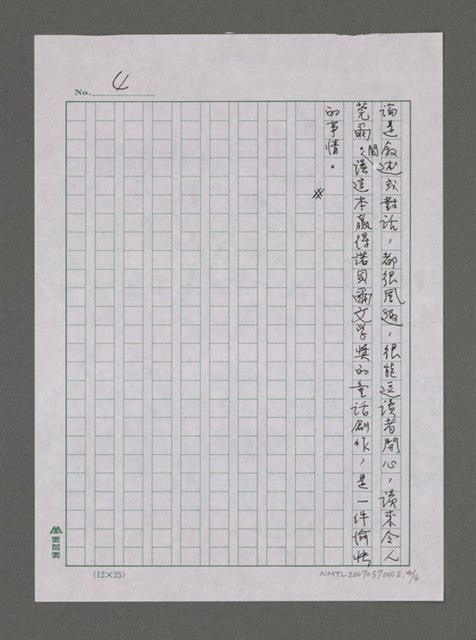 No. 4
論是敘述或對話，都很風趣，很能逗讀者開心，讀來令人
莞爾。閱讀這本贏得諾貝爾文學獎的童話創作，是一件愉快
的事情。
(12×25)
NMTL20070570002 4/4